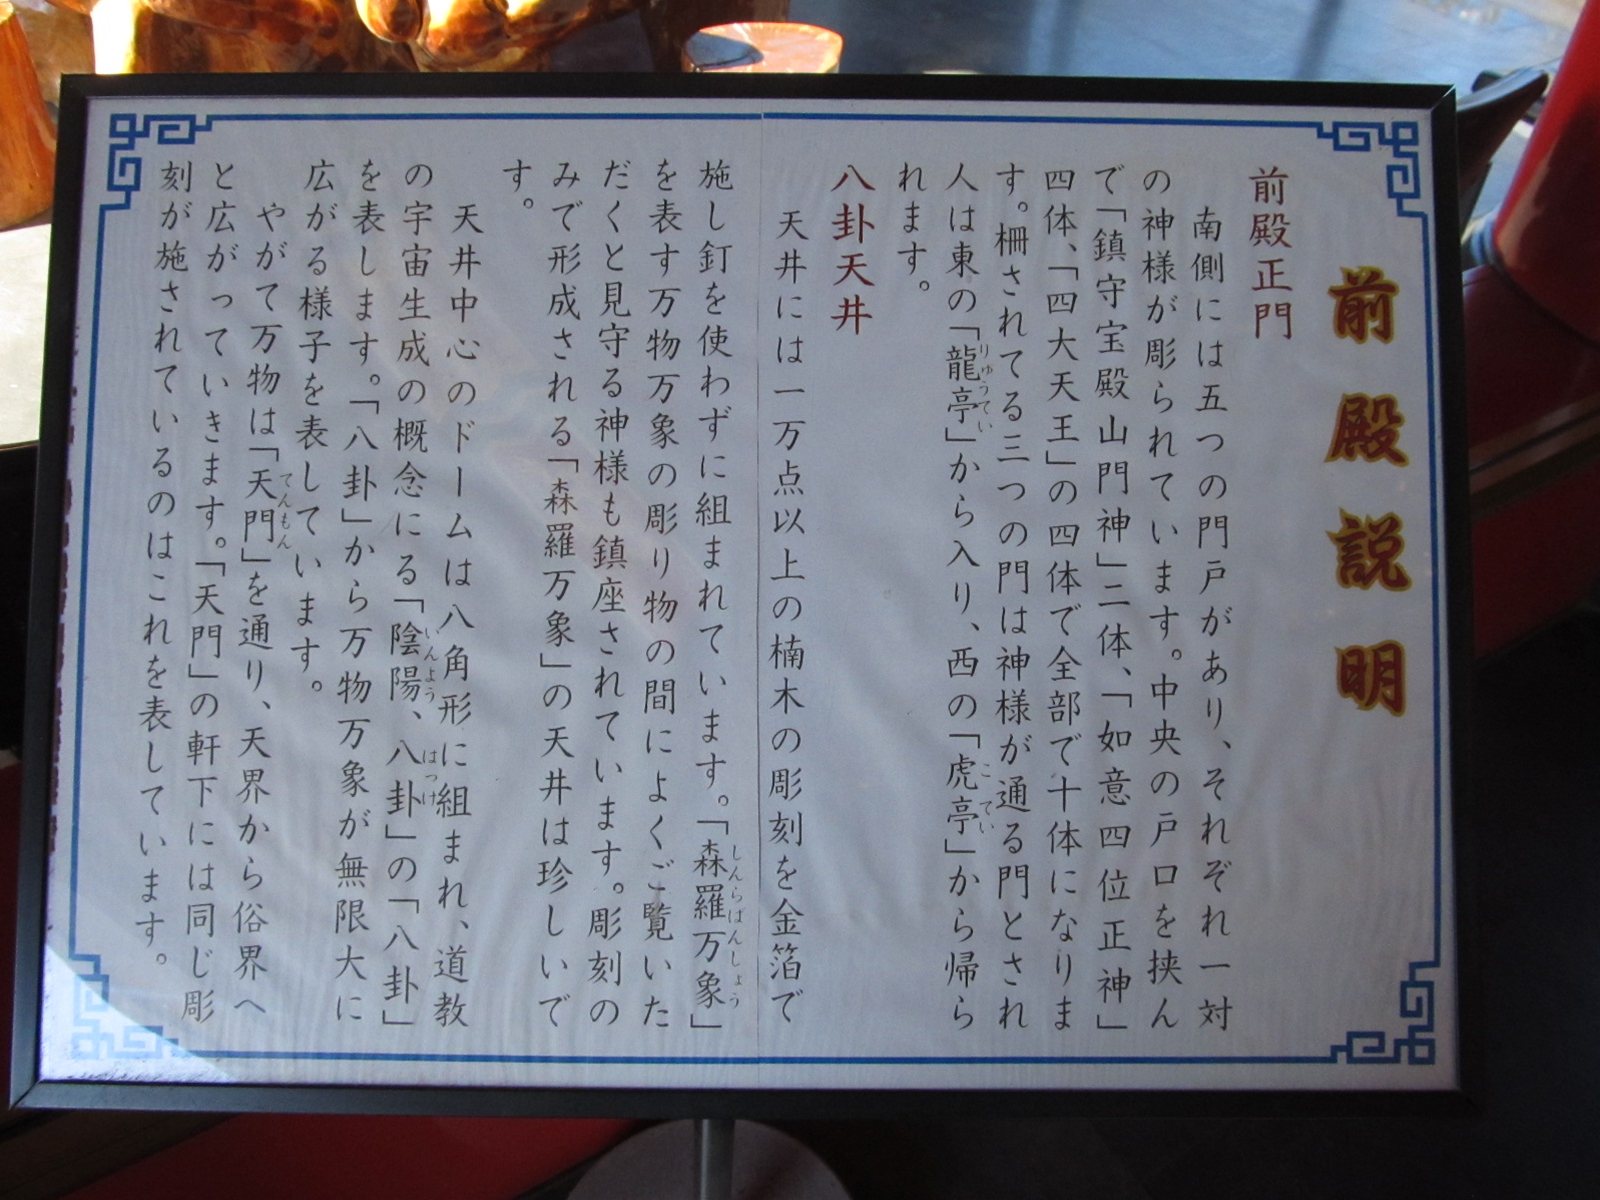 前殿説明
前殿正門
南側には五つの門戸があり、それぞれ一対
の神様が彫られています。中央の戸口を挟ん
で「鎮守宝殿山門神」二体、「如意四位正神」
四体、「四大天王」の四体で全部で十体になりま
す。柵されてる三つの門は神様が通る門とされ
人は東の「龍亭」から入り、西の「虎亭」から帰ら
りゅうてい
こてい
れます。
八卦天井
天井には一万点以上の楠木の彫刻を金箔で
施し釘を使わずに組まれています。「森羅万象」
しんらばんしょう
を表す万物万象の彫り物の間によくご覧いた
だくと見守る神様も鎮座されています。彫刻の
みで形成される「森羅万象」の天井は珍しいで
す。
天井中心のドームは八角形に組まれ、道教
の宇宙生成の概念にる「陰陽、八卦」の「八卦」
いんよう
はっけ
を表します。「八卦」から万物万象が無限大に
広がる様子を表しています。
やがて万物は「天門」を通り、天界から俗界へ
てんもん
と広がっていきます。「天門」の軒下には同じ彫
刻が施されているのはこれを表しています。